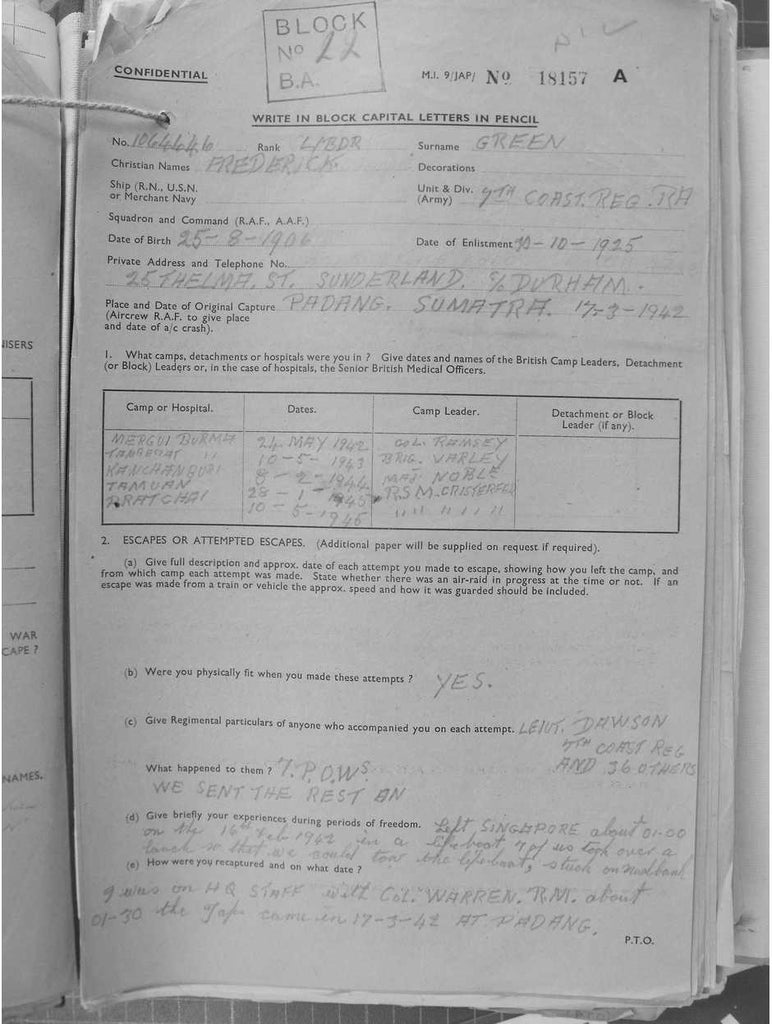 ISERS
WAR
CAPE ?
NAMES.
BLOCK
No 22
B.A.
CONFIDENTIAL
M.I. 9/JAP/ No 18157 A
WRITE IN BLOCK CAPITAL LETTERS IN PENCIL
No. 1064646 Rank L/BDR Surname GREEN
Christian Names FREDERICK Decorations
Ship (R.N., U.S.N. or Merchant Navy Unit & Div. (Army) 7TH COAST. REG. RA
Squadron and Command (R.A.F., A.A.F.)
Date of Birth 25-8-1906 Date of Enlistment -10-1925
Private Address and Telephone No.
25 THELMA. ST. SUNDERLAND. C/o DURHAM.
Place and Date of Original Capture PADANG. SUMATRA. 17-3-1942
(Aircrew R.A.F. to give place
and date of a/c crash).
1. What camps, detachments or hospitals were you in ? Give dates and names of the British Camp Leaders, Detachment
(or Block) Leaders or, in the case of hospitals, the Senior British Medical Officers.
Camp or Hospital. Dates. Camp Leader. Detachment or Block Leader (if any).
MERGUI BURMA 24 MAY 1942 COL. RAMSEY
" 10-5-1943 BRIG. VARLEY
KANCHANBURI 8-2-1944 MAJ. NOBLE
TAMUAN 28-1-1945 R.S.M.
PRATCHAI 10-5-1945 " " " " "
2. ESCAPES OR ATTEMPTED ESCAPES. (Additional paper will be supplied on request if required).
(a) Give full description and approx. date of each attempt you made to escape, showing how you left the camp, and
from which camp each attempt was made. State whether there was an air-raid in progress at the time or not. If an
escape was made from a train or vehicle the approx. speed and how it was guarded should be included.
(b) Were you physically fit when you made these attempts ? YES.
(c) Give Regimental particulars of anyone who accompanied you on each attempt. LEIUT. DAWSON
7TH COAST REG
AND 36 OTHERS
What happened to them ? 7. P.O.Ws
WE SENT THE REST ON
(d) Give briefly your experiences during periods of freedom. Left SINGAPORE about 01-00
on the 16th Feb 1942 in a lifeboat, 7 of us took over a
launch so that we could tow the lifeboat, stuck on mudbank
(e) How were you recaptured and on what date ?
I was on HQ STAFF with Col. WARREN. R.M. about
01-30 the Japs came in 17-3-42 AT PADANG.
P.T.O.